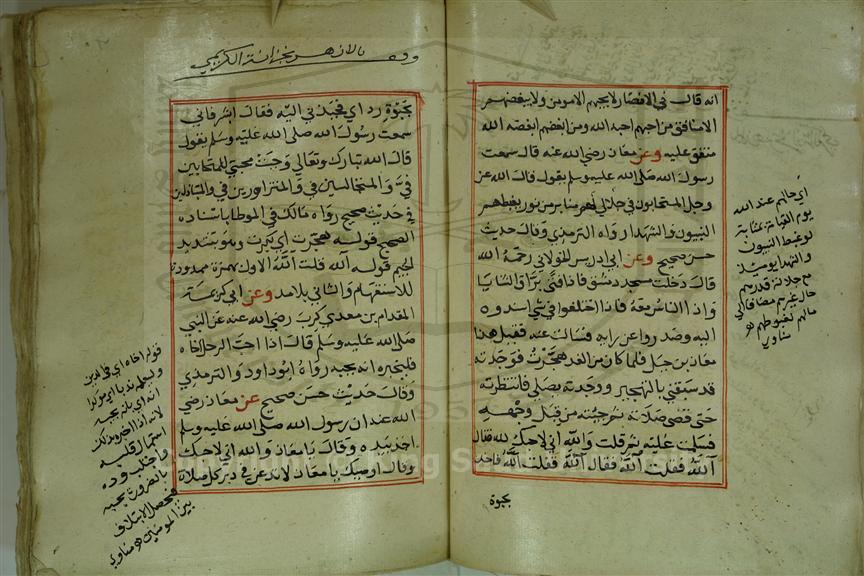 انه قال في الانصار لا يحبهم الا مومن ولا يبغضهم
الا منافق من احبهم احبه الله ومن ابغضهم ابغضه الله
متفق عليه وعن معاذ رضي الله عنه قال سمعت
رسول الله صلى الله عليه وسلم يقول قال الله عز
وجل المتحابون في جلالي لهم منابر من نور يغبطهم
النبيون والشهدا رواه الترمذي وقال حديث
حسن صحيح وعن ابي ادريس الخولاني رحمة الله
قال دخلت مسجد دمشق فاذا فتى براق الثنايا
واذا الناس معه فاذا اختلفوا في شي اسندوه
اليه وصدروا عن رايه فسالت عنه فقيل هذا
معاذ بن جبل فلما كان من الغد هجرت فوجدته
قد سبقني بالتهجير ووجدته يصلي فانتظرته
حتى قضى صلاته ثم جيته من قبل وجهه
فسلمت عليه ثم قلت والله اني لاحبك لله فقال
آلله فقلت آلله فقال آلله فقلت آلله فاخذ
بحبوة
اي حالهم عند الله
يوم القيامة بمثابة
لو غبط النبيون
والشهدا يوميذ
مع جلالة قدرهم
حال غيرهم مضافا الي
مالهم لغبطوهم هو
مناوي
بحبوة رداي فجبذني اليه فقال ابشر فاني
سمعت رسول الله صلى الله عليه وسلم يقول
قال الله تبارك وتعالي وجبت محبتي للمتحابين
في والمتجالسين في والمتزاورين في والمتباذلين
في حديث صحيح رواه مالك في الموطا باسناده
الصحيح قوله هجرت اي بكرت وهو بتشديد
الجيم قوله آلله قلت آلله الاول بهمزة ممدودة
للاستفهام والثاني بلا مد وعن ابي كريمة
المقدام بن معدي كرب رضي الله عنه عن النبي
صلى الله عليه وسلم قال اذا احب الرجل اخاه
فليخبره انه يحبه رواه ابو داود والترمذي
وقال حديث حسن صحيح عن معاذ رضي
الله عنه ان رسول الله صلى الله عليه وسلم
اخذ بيده وقال يا معاذ والله اني لاحبك
وقال اوصيك يا معاذ لا تدعن في دبر كل صلاة
قوله اخاه اي في الدين
انه اي بانه يحبه
لانه اذا اخبره بذلك
استمال قلبه
واجتلب وده
بالضرورة يحبه
فيحصل الايتلاف
بين المومنين هو مناوي